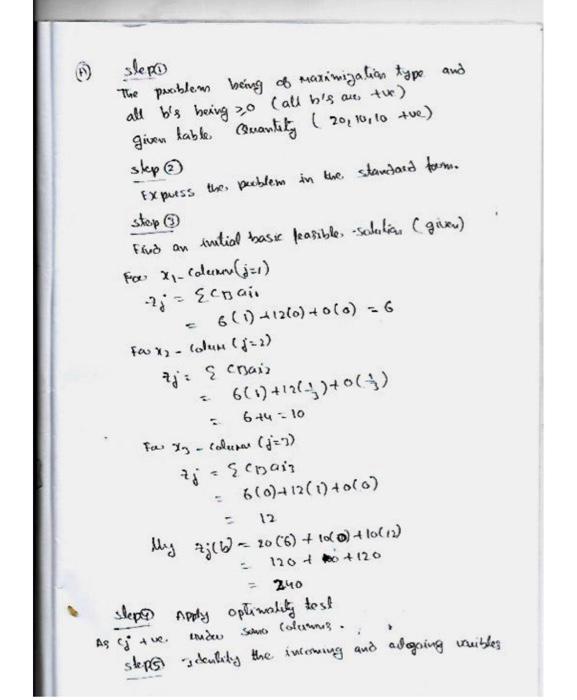 A) step①
The problem being of maximization type and
all b's being ≥0 (all b's are +ve)
given table Quantity ( 20, 10, 10 +ve)
step②
Express the problem in the standard form.
step③
Find an initial basic feasible solution (given)
For x₁ - column (j=1)
zj = ΣCB ai1
= 6(1)+12(0)+0(0) = 6
For x₂ - column (j=2)
zj = Σ CB ai2
= 6(1)+12(1/3)+0(1/3)
= 6+4 = 10
For x₃ - column (j=3)
zj = ΣCB ai3
= 6(0)+12(1)+0(0)
= 12
lly zj(b) = 20(6) + 10(0) + 10(12)
= 120 + + 120
= 240
step④ Apply optimality test
As cj +ve under some columns.
step⑤ Identify the incoming and outgoing variables